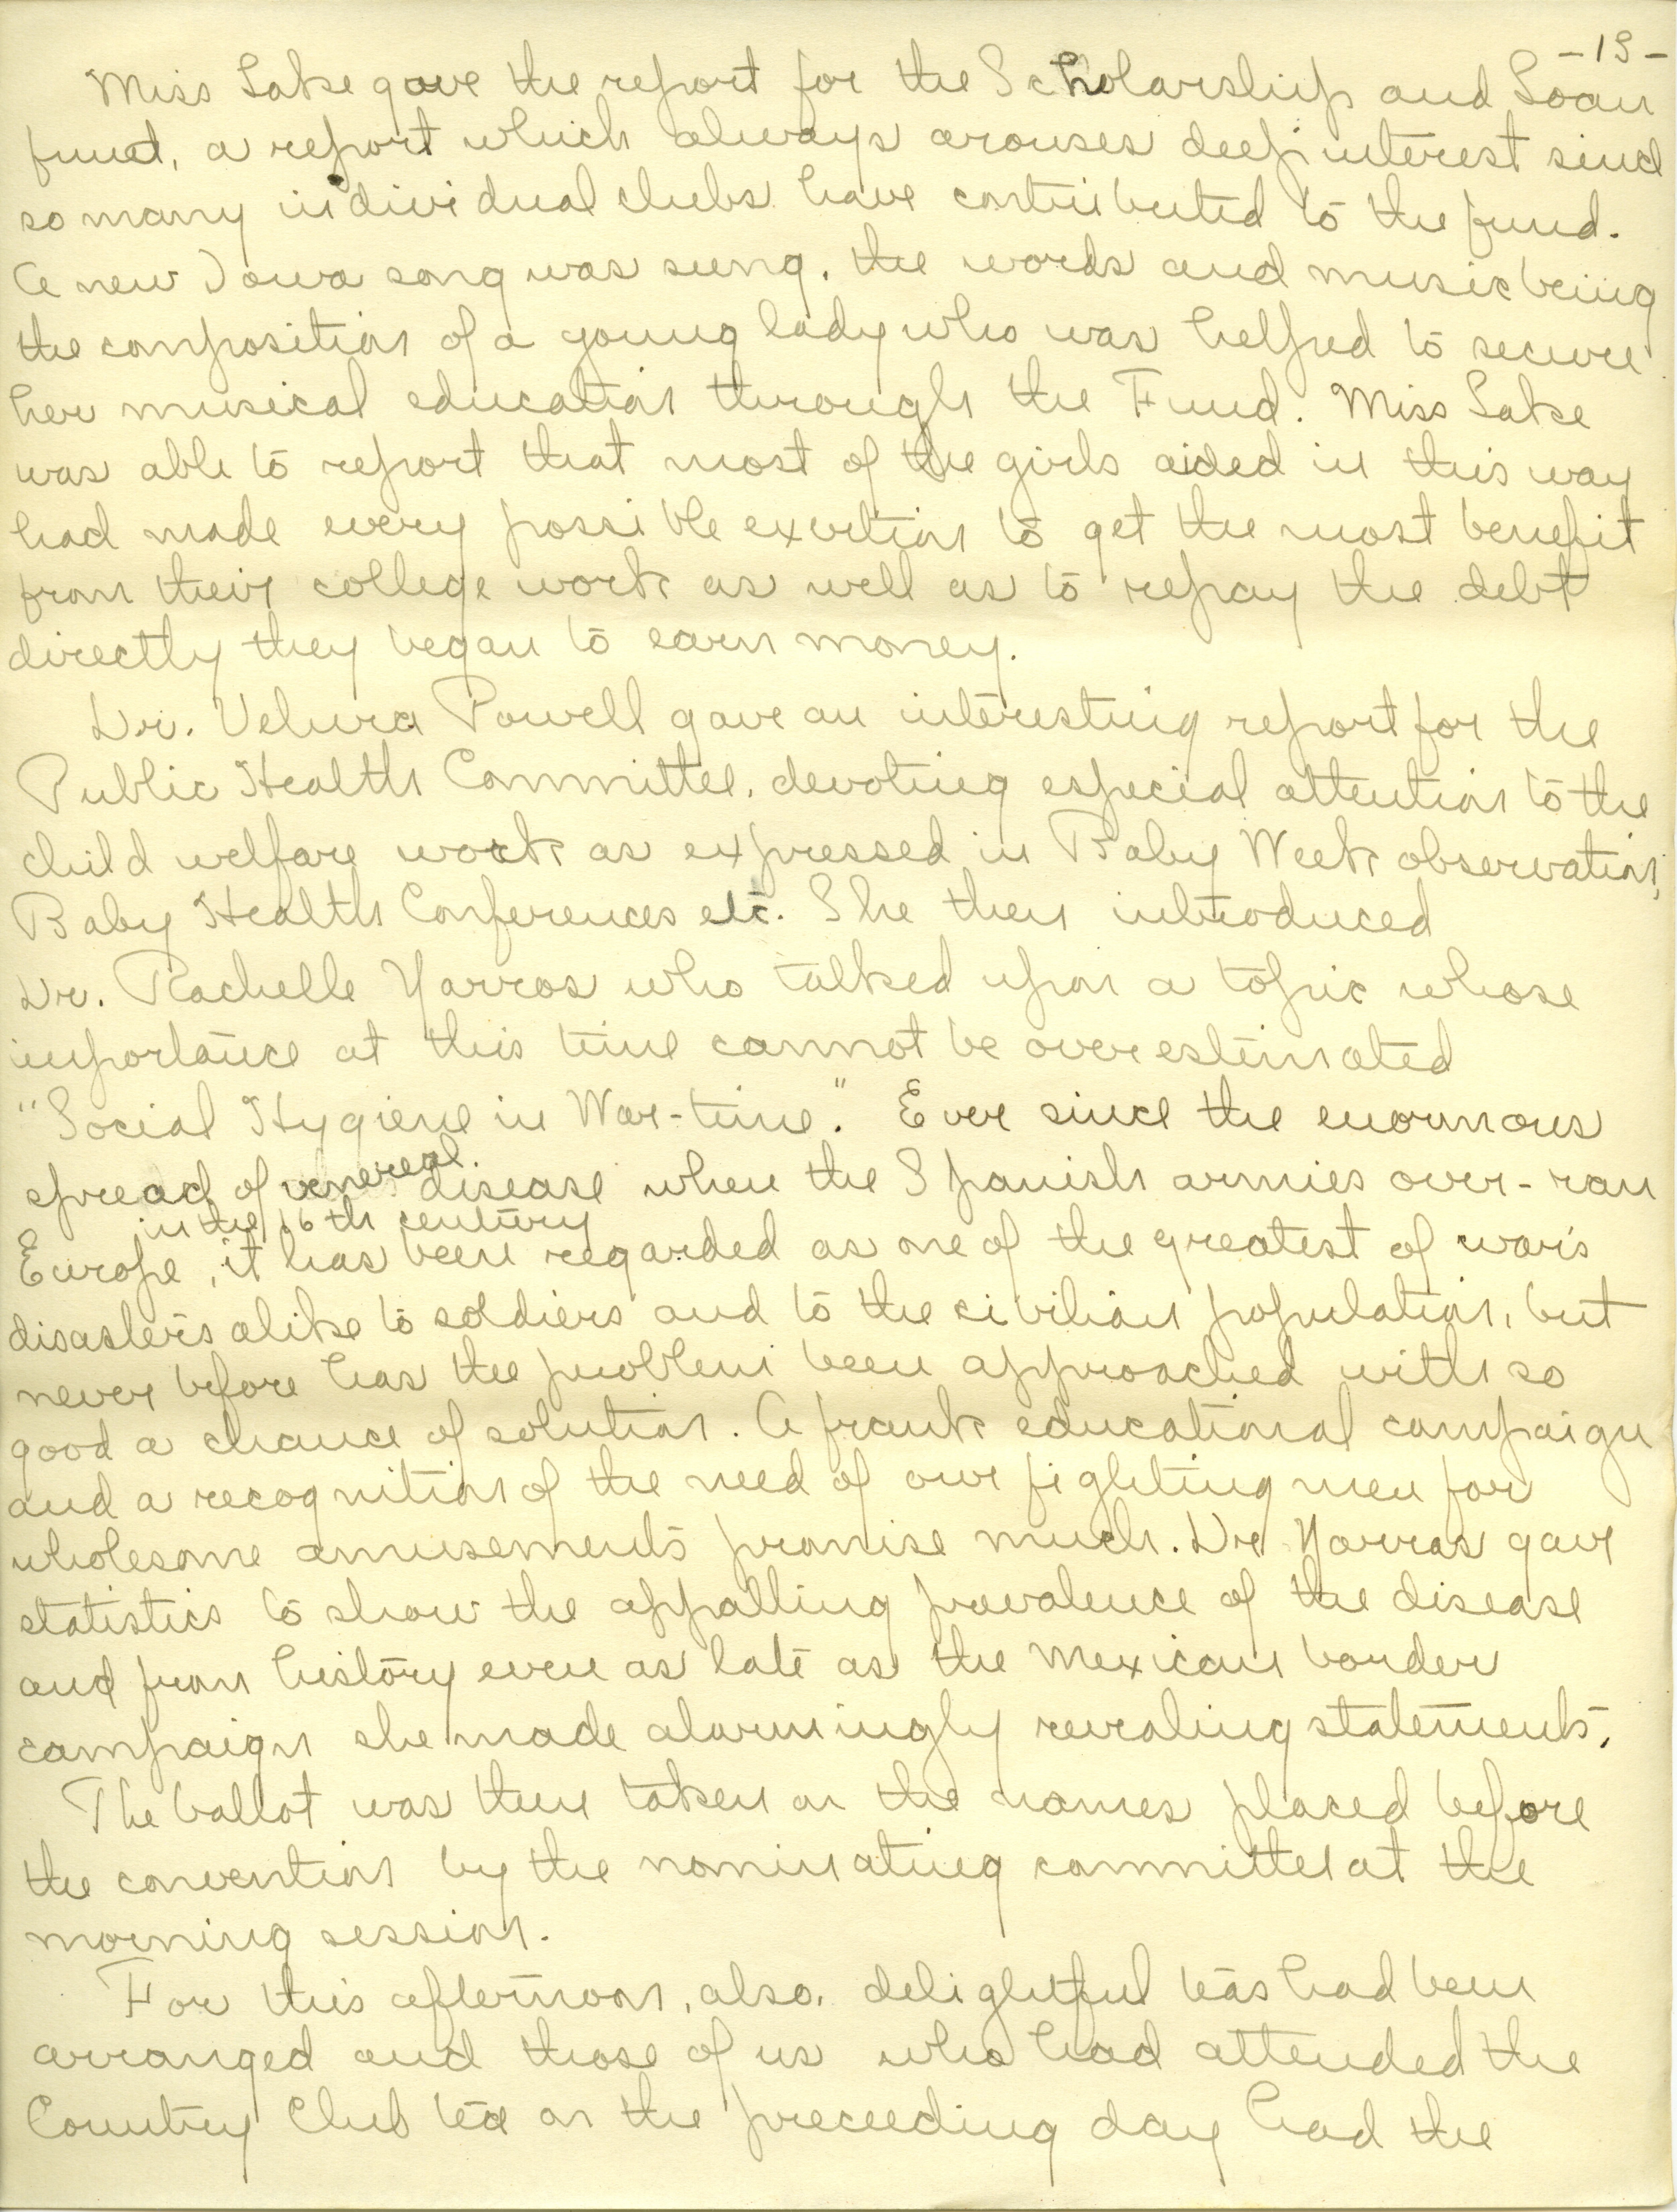 -19-
Miss Lake gave the report for the Scholarship and Loan
fund, a report which always arouses deep interest since
so many individual clubs have contributed to the fund.
A new Iowa song was sung, the words and music being
the composition of a young lady who was helped to secure
her musical education through the Fund. Miss Lake
was able to report that most of the girls aided in this way
had made every possible exertion to get the most benefit
from their college work as well as to repay the debt
directly they began to earn money.
Dr. Velura Powell gave an interesting report for the
Public Health Committee, devoting especial attention to the
child welfare work as expressed in Baby Week observation,
Baby Health Conferences etc. She then introduced
Dr. Rachelle Yarros who talked upon a topic whose
importance at this time cannot be overestimated
"Social Hygiene in War-time." Ever since the enormous
spread of venereal disease when the Spanish armies over-ran
in the 16th century
Europe, it has been regarded as one of the greatest of war's
disasters alike to soldiers and to the civilian population, but
never before has the problem been approached with so
good a chance of solution. A frank educational campaign
and a recognition of the need of our fighting men for
wholesome amusements promise much. Dr Yarros gave
statistics to show the appalling prevalence of the disease
and from history even as late as the Mexican border
campaign she made alarmingly revealing statements.
The ballot was then taken on the names placed before
the convention by the nominating committee at the
morning session.
For this afternoon, also, delightful teas had been
arranged and those of us who had attended the
Country Club tea on the preceeding day had the